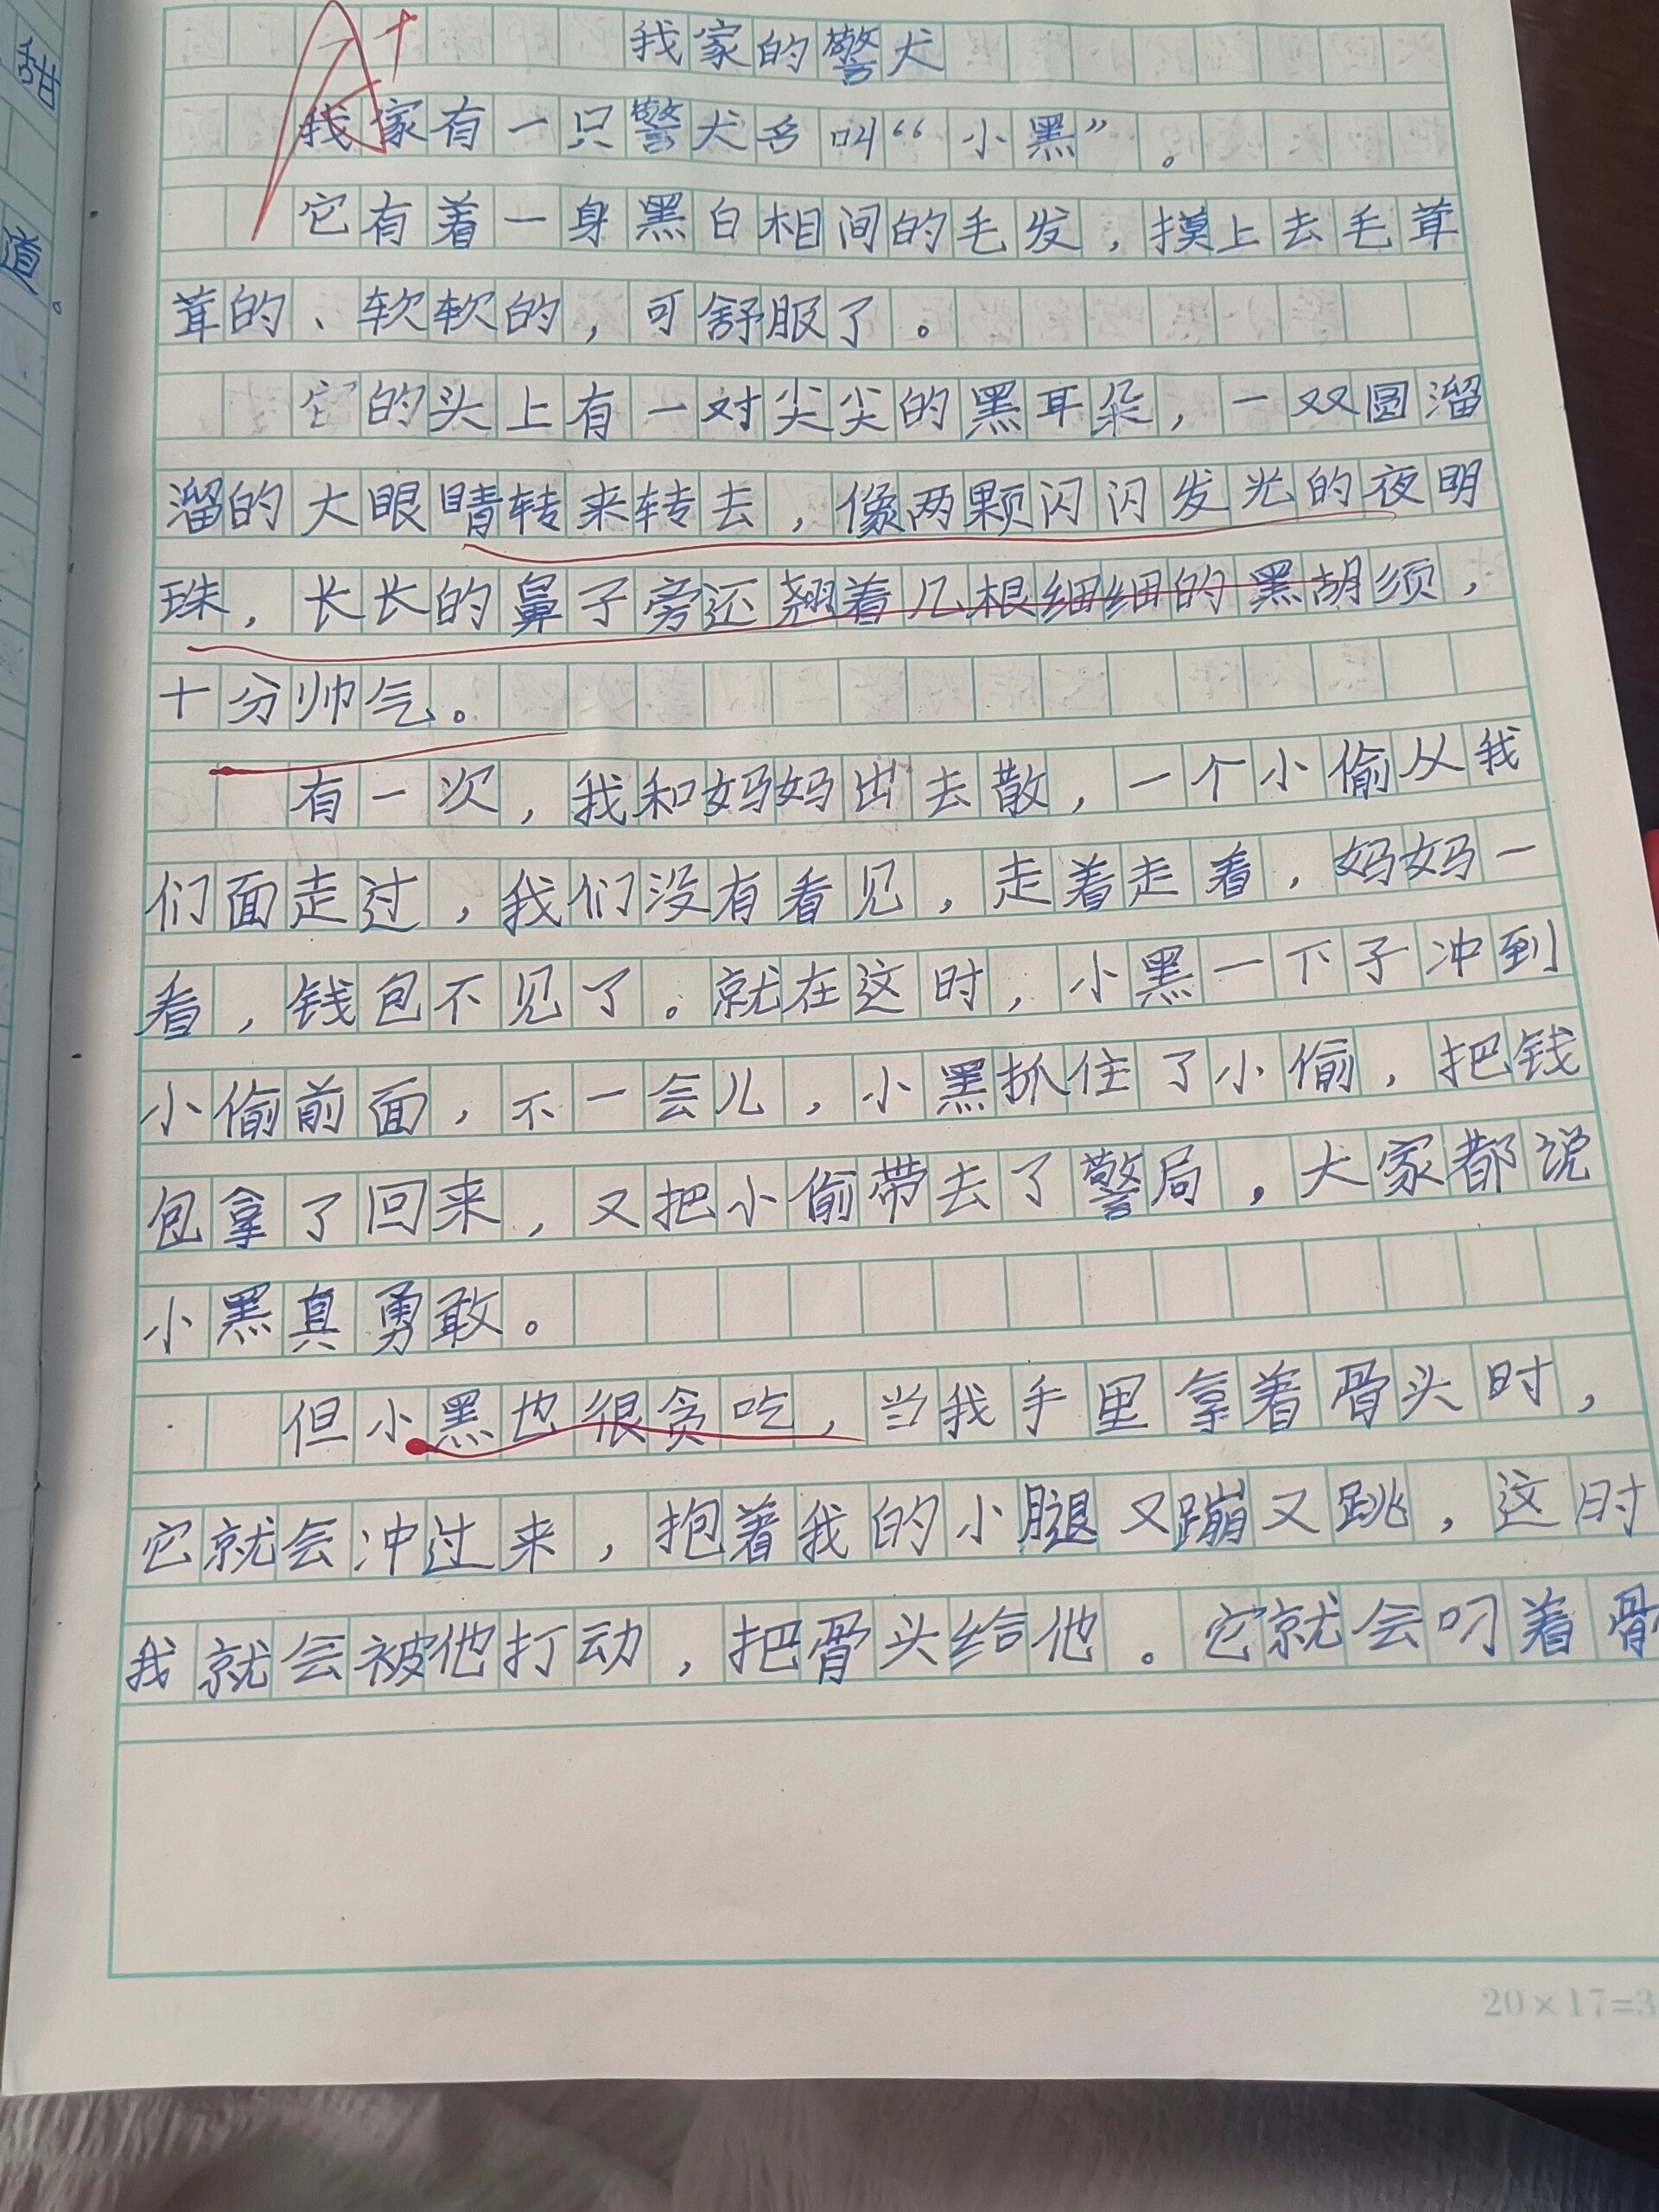 甜
道。
A+
我家的警犬
我家有一只警犬名叫“小黑”。
它有着一身黑白相间的毛发，摸上去毛茸
茸的、软软的，可舒服了。
它的头上有一对尖尖的黑耳朵，一双圆溜
溜的大眼睛转来转去，像两颗闪闪发光的夜明
珠，长长的鼻子旁还翘着几根细细的黑胡须，
十分帅气。
有一次，我和妈妈出去散，一个小偷从我
们面走过，我们没有看见，走着走着，妈妈一
看，钱包不见了。就在这时，小黑一下子冲到
小偷前面，不一会儿，小黑抓住了小偷，把钱
包拿了回来，又把小偷带去了警局，大家都说
小黑真勇敢。
但小黑也很贪吃，当我手里拿着骨头时，
它就会冲过来，抱着我的小腿又蹦又跳，这时
我就会被他打动，把骨头给他。它就会叼着骨
20×17=3